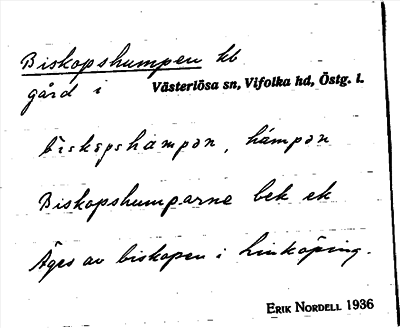 Biskopshumpen kb
gård i Västerlösa sn, Vifolka hd, Östg. l.
biskɔpshampən, hámpən
Biskopshumparne bek ek
Äges av biskopen i Linköping.
ERIK NORDELL 1936